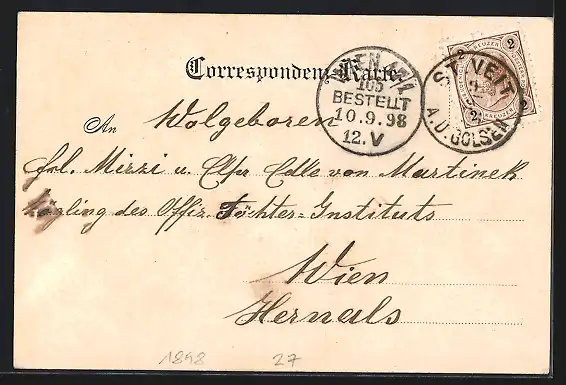 Correspondenz-Karte.
WIEN 17/1
105
BESTELLT
10.9.98
12.V
ST. VEIT
A.D. GÖLSEN
KREUZER
2 2
2 2
An Wolgeboren
Frl. Mizzi u. Elsa Edle von Martinek
Zögling des Offiz. Töchter-Instituts
Wien
Hernals
1898 27